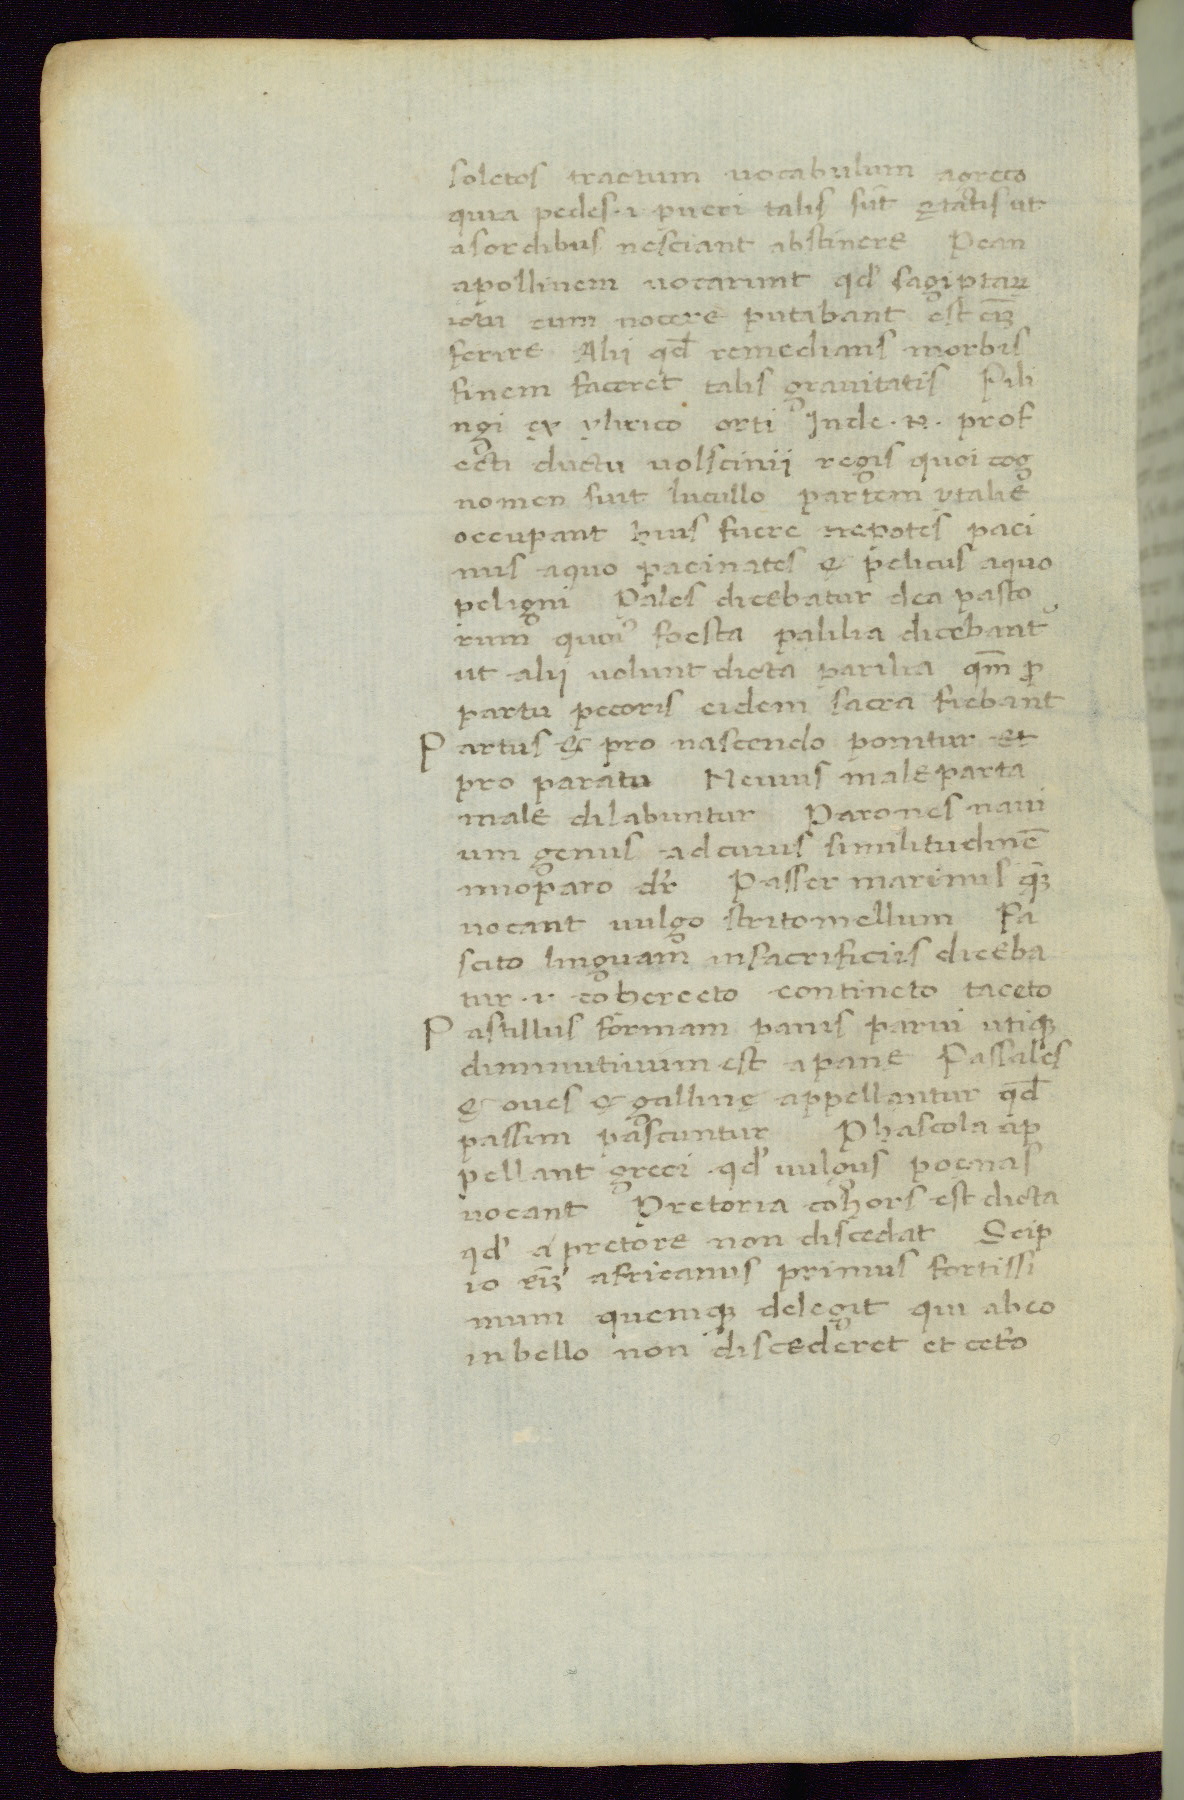 soletos tractum uocabulum agreco
quia pedes · i · pueri talis sūt ętatis ut
asordibus nesciant abstinere Pean
apollinem uocarunt qd' sagiptaꝝ
ictu eum nocere putabant est eīꝫ
ferire Alii qd̄ remedians morbis
finem faceret talis grauitatis Pili
ngi ex ylirico orti Inde · N · prof
ecti ductu uolscinii regis quoi cog
nomen fuit lucullo partem ytalie
occupant huis fuere nepotes paci
nus aquo pacinates & pelicus aquo
peligni Pales dicebatur dea pasto
rum quoi' foesta palilia dicebant'
ut alii uolunt dicta parilia qm̄ ꝓ
partu pecoris eidem sacra fiebant
Partus & pro nascendo ponitur et
pro paratu Neuius male parta
male dilabuntur Parones naui
um genus adcuius similitudinē
mioparo dr̄ Passer marinus q̄ꝫ
uocant uulgo stritomellum Pa
scito linguam insacrificiis diceba
tur · i · coherceto contineto taceto
Pastillus formam panis parui utiqꝫ
diminutiuum est apane Passales
& oues & galline appellantur qd̄
passim pascuntur Phascola ap
pellant greci qd' uulgus poenas
uocant Pretoria cohors est dicta
qd' apretore non discedat Scip
io eīꝫ africanus primus fortissi
mum quemqꝫ delegit qui abeo
inbello non discederet et cet'o